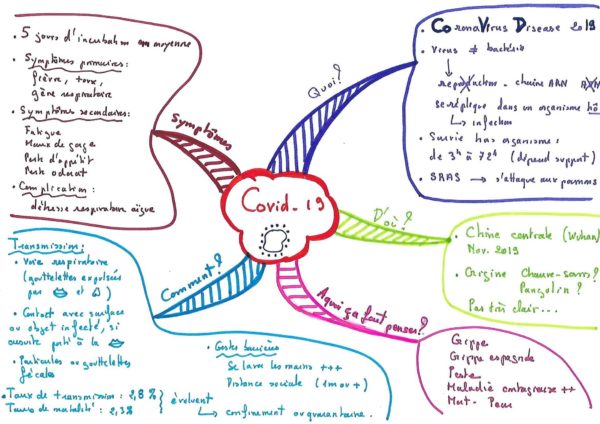 Covid-19
Quoi?
CoronaVirus Disease 2019
Virus ≠ bactérie
reproduction - chaîne ARN ADN
se réplique dans un organisme hô
↳ infection
Survie hors organisme :
de 3h à 72h (dépend support)
SRAS → s'attaque aux poumons
D'où?
Chine centrale (Wuhan)
Nov. 2019
Origine Chauve-souris?
Pangolin ?
Pas très clair...
Aquoi ça fait penser?
Grippe
Grippe espagnole
Peste
Maladie contagieuse ++
Mort - Peur
Comment?
Transmission :
Voie respiratoire
(gouttelettes expulsées
par et )
Contact avec surface
ou objet infecté, si
ensuite porté à la
Particules ou gouttelettes
fécales
Gestes barrières
Se laver les mains +++
Distance sociale (1m ou +)
Taux de transmission : 2,8 %
Taux de mortalité : 2,3%
évoluent
↳ confinement ou quarantaine.
Symptômes
5 jours d'incubation en moyenne
Symptômes primaires :
fièvre, toux,
gêne respiratoire
Symptômes secondaires :
Fatigue
Maux de gorge
Perte d'appétit
Perte odorat
Complication :
détresse respiratoire aigüe